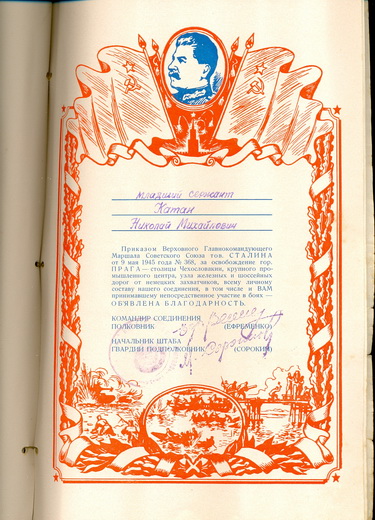 младший сержант
Катан
Николай Михайлович
Приказом Верховного Главнокомандующего
Маршала Советского Союза тов. СТАЛИНА
от 9 мая 1945 года № 368, за освобождение гор.
ПРАГА — столицы Чехословакии, крупного про-
мышленного центра, узла железных и шоссейных
дорог от немецких захватчиков, всему личному
составу нашего соединения, в том числе и ВАМ
принимавшему непосредственное участие в боях —
ОБЪЯВЛЕНА БЛАГОДАРНОСТЬ.
КОМАНДИР СОЕДИНЕНИЯ
ПОЛКОВНИК (ЕФРЕМЕНКО)
НАЧАЛЬНИК ШТАБА
ГВАРДИИ ПОДПОЛКОВНИК (СОРОКИН)